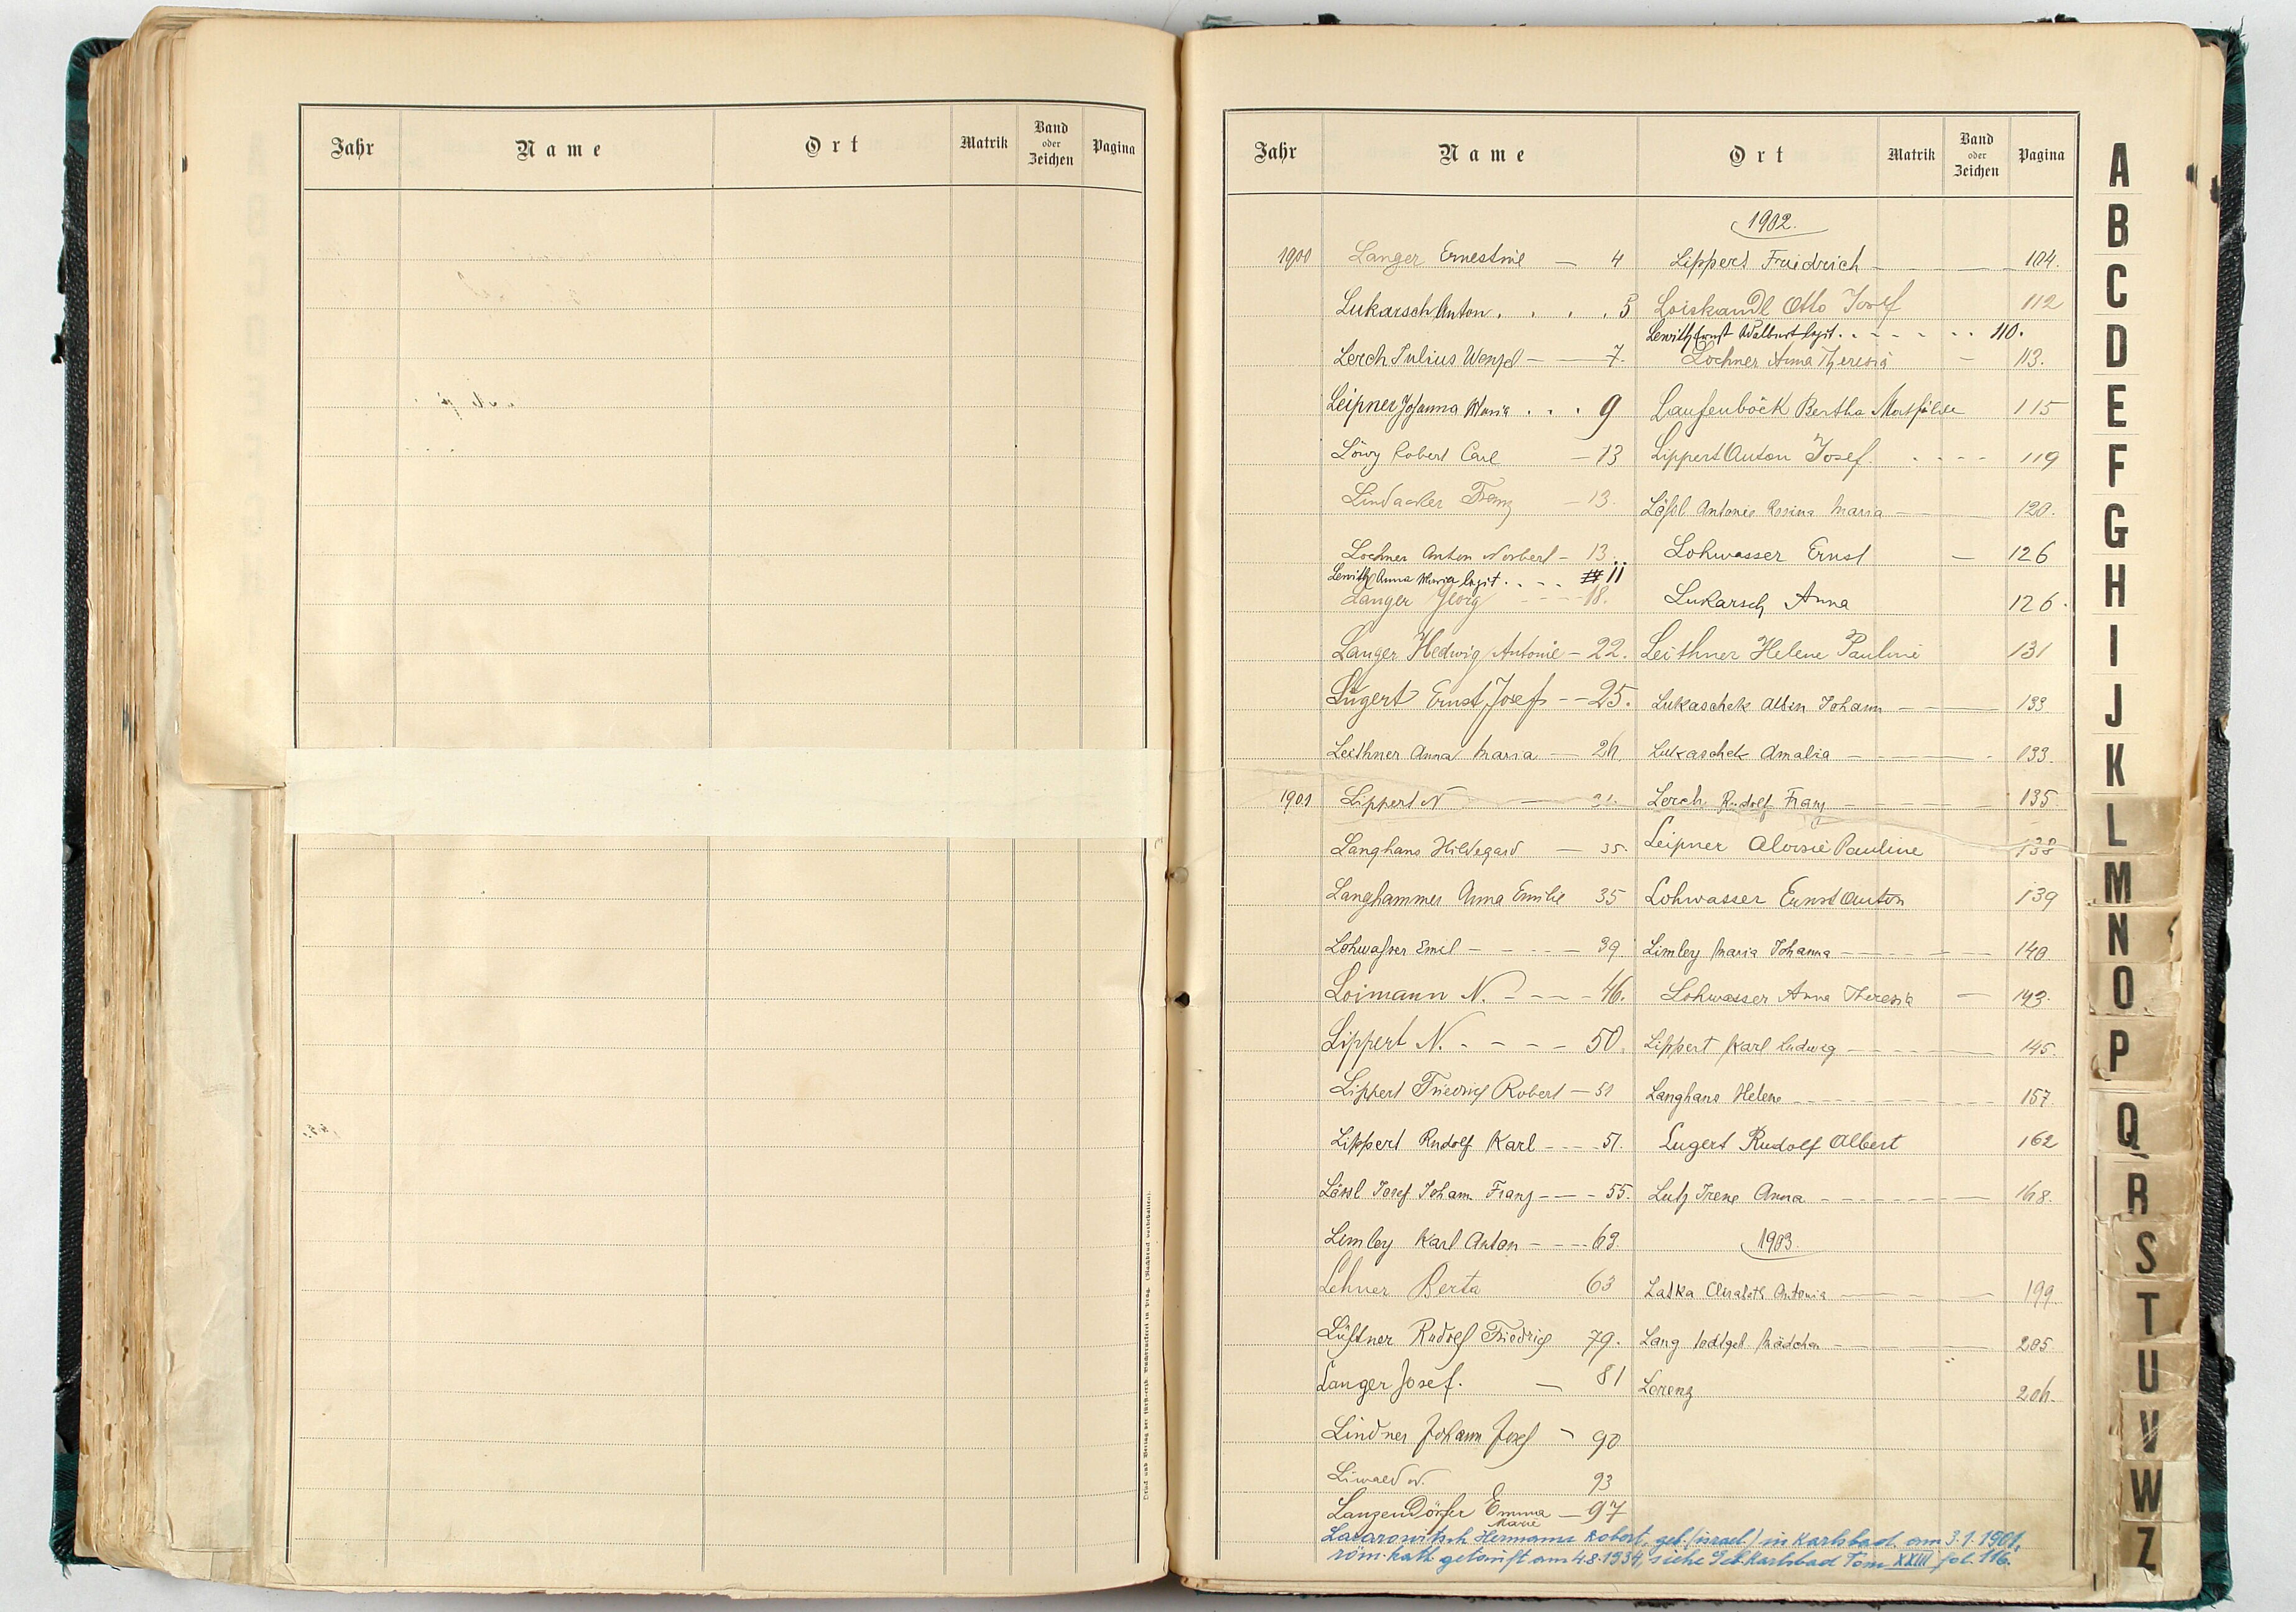 Jahr Name Ort Matrik Band oder Zeichen Pagina
Druck und Verlag der fürsterzb. Buchdruckerei in Prag. (Nachdruck vorbehalten).
Jahr Name Ort Matrik Band oder Zeichen Pagina
1900 Langer Ernestine — 4
Lukarsch Anton . . . . 5
Lerch Julius Wenzel — — 7.
Leipner Johanna Maria . . . 9
Löwy Robert Carl — 13
Lindacker Franz — 13.
Lochner Anton Norbert — 13.
Lewith Anna Maria legit. . . . 11
Langer Georg - - - - 18.
Langer Hedwig Antonie — 22.
Lugert Ernst Josef - - 25.
Leithner Anna Maria — 26.
1901 Lippert N — 31.
Langhans Hildegard — 35.
Langhammer Anna Emilie 35
Lohwaſser Emil - - - - - 39.
Loimann N. - - - - 46.
Lippert N. - - - - 50.
Lippert Friedrich Robert — 51
Lippert Rudolf Karl - - - 51.
Lössl Josef Johann Franz - - - 55.
Limley Karl Anton - - - - 63.
Lehner Berta 63
Lüftner Rudolf Friedrich 79.
Langer Josef. — 81
Lindner Johann Josef - 90
Liwald N. 93
Langendörfer Emma Marie — 97
1902.
Lippert Friedrich - - - 104.
Loiskandl Otto Josef 112
Lewith Ernst Adalbert legit. . - - - . . 110.
Lochner Anna Theresia — 113.
Laufenböck Bertha Mathilde 115
Lippert Anton Josef. . - - - 119
Lößl Antonie Rosina Maria — — 120.
Lohwasser Ernst — 126
Lukarsch Anna 126.
Leithner Helene Pauline 131
Lukaschek Albin Johann - — 133
Lukaschek Amalia - - - - - 133.
Lerch Rudolf Franz - - - - - 135
Leipner Aloisie Pauline 138
Lohwasser Ernst Anton 139
Limley Maria Johanna - - - - - 140
Lohwasser Anna Theresia — 143.
Lippert Karl Ludwig - - - - 145.
Langhans Helene - - - - - 157.
Lugert Rudolf Albert 162
Lutz Irene Anna - - - - - 168.
1903.
Laska Elisabeth Antonia - - - 199.
Lang todtgeb Mädchen - - - 205
Lorenz 206.
Lazarowitsch Hermann Robert, geb. (israel.) in Karlsbad am 3.1.1901,
röm.-kath. getauft am 4.8.1934, siehe Geb. Karlsbad Tom XXIII fol. 116.
A
B
C
D
E
F
G
H
I
J
K
L
M
N
O
P
Q
R
S
T
U
V
W
Z